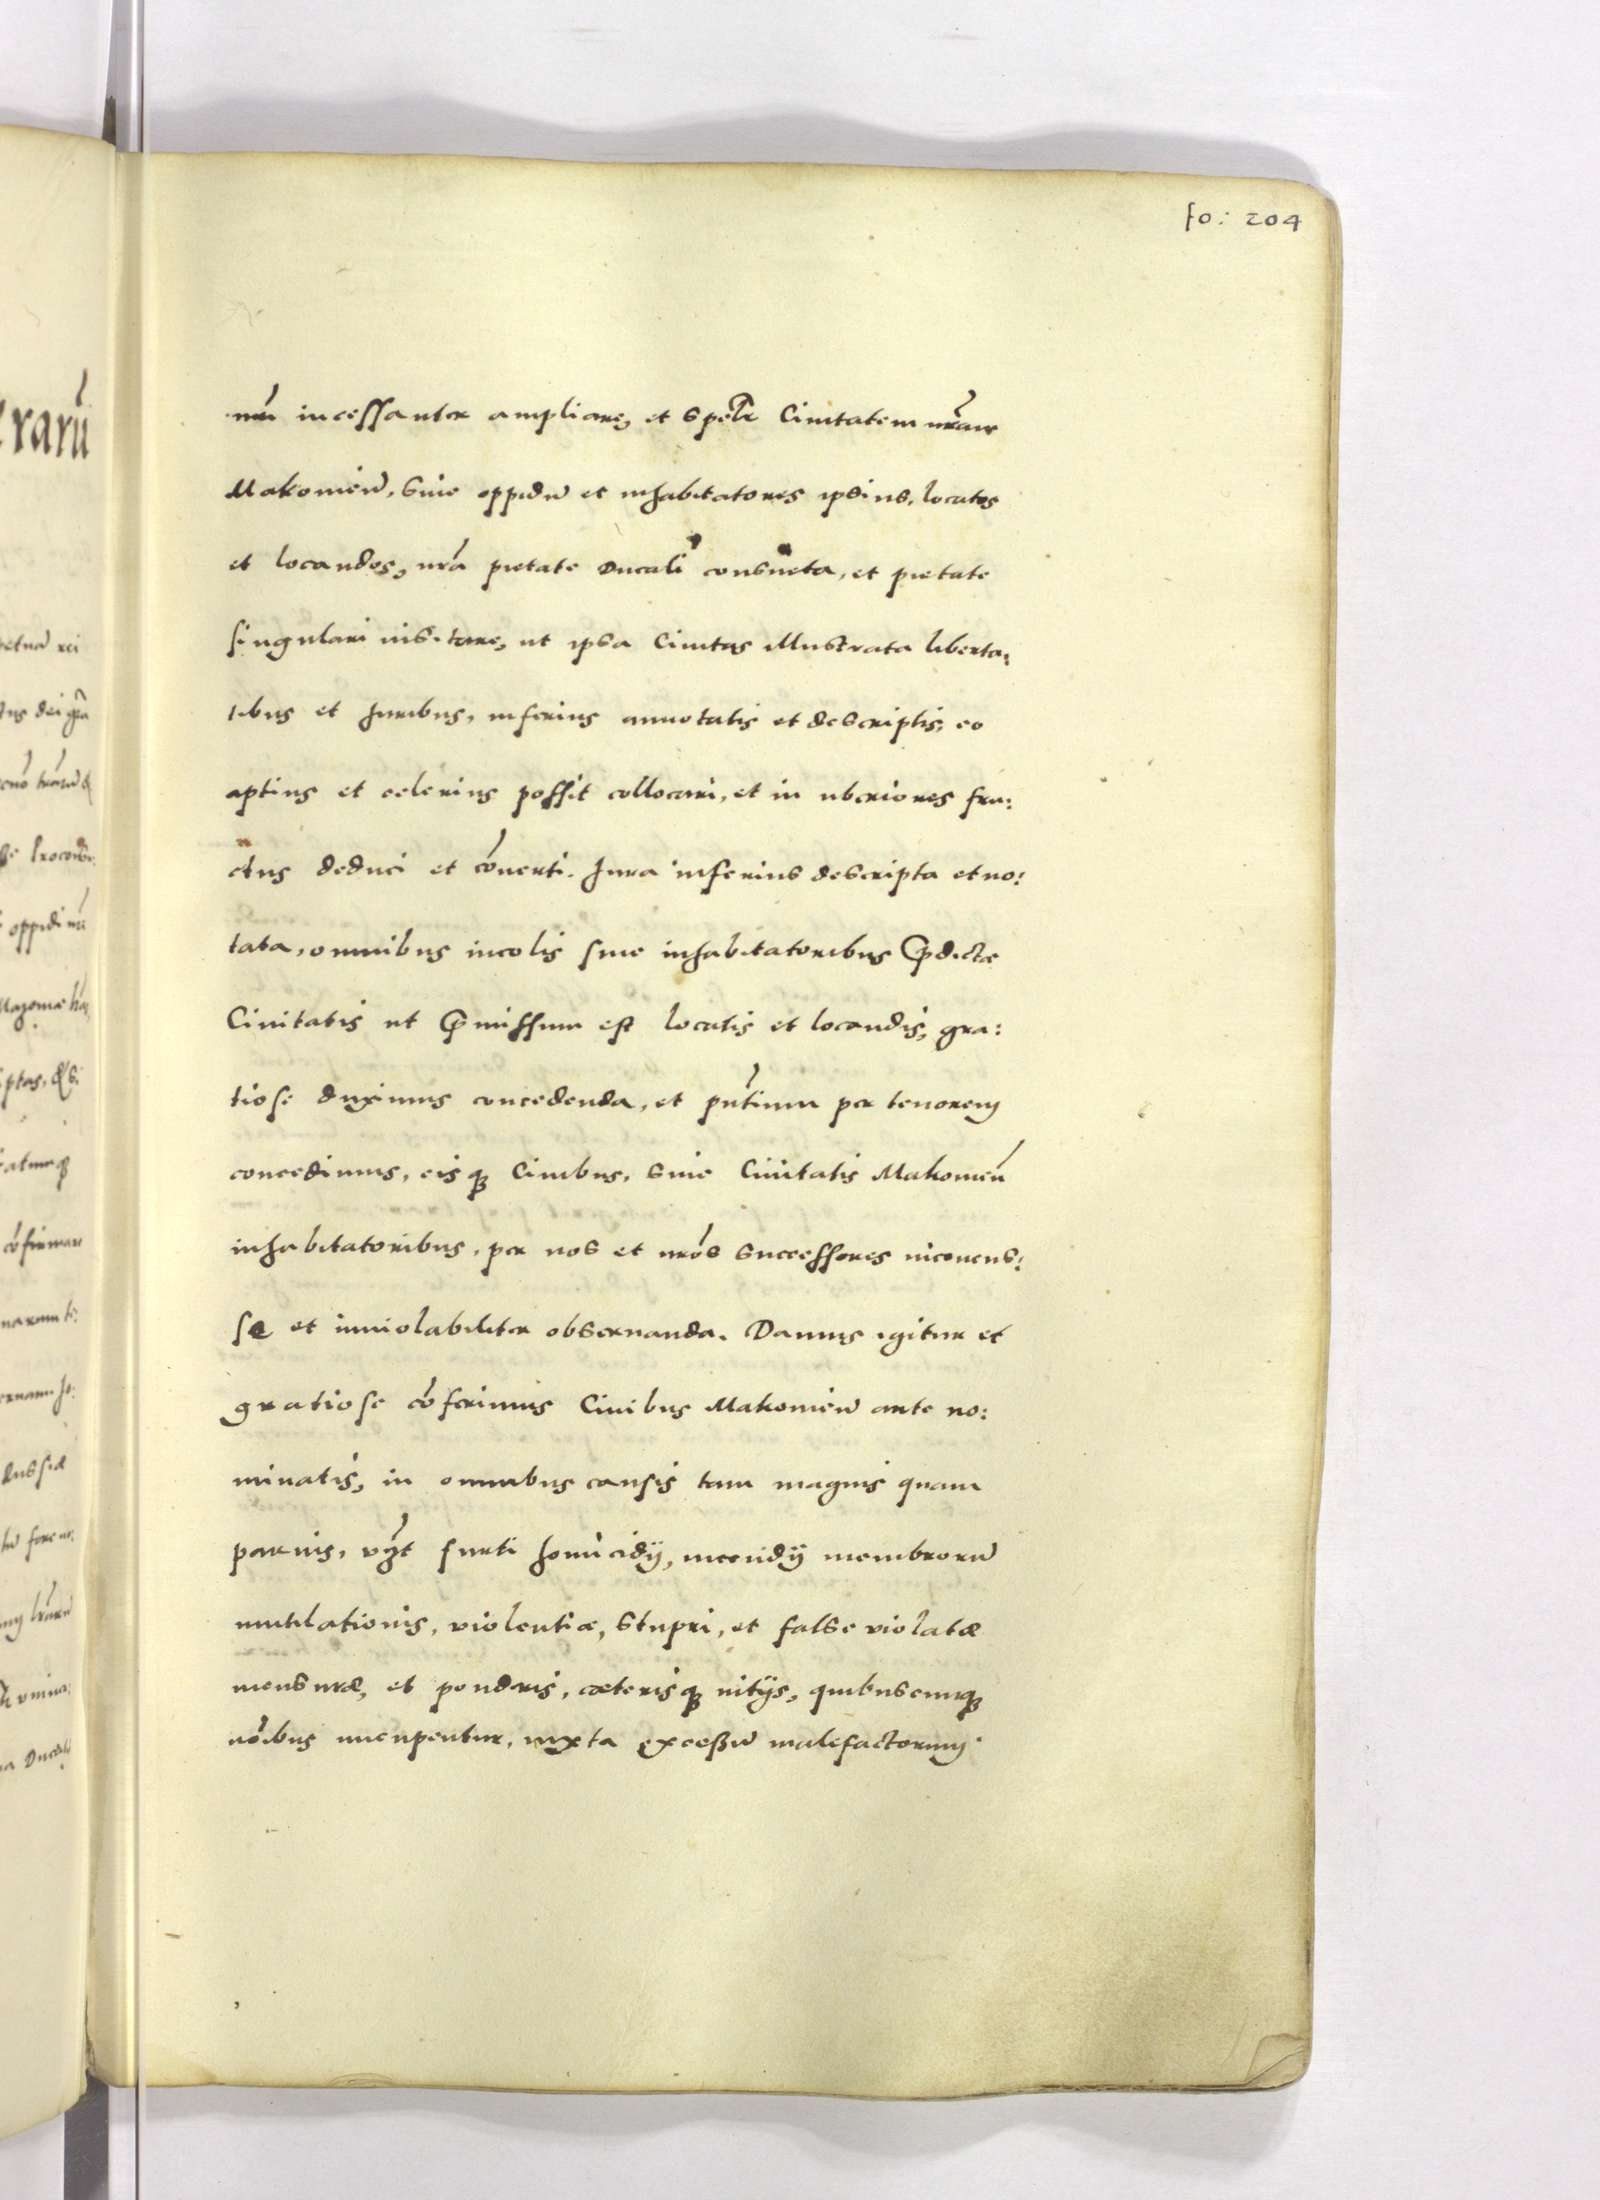 fo: 204
mũ incessanter ampliare, et spẽlr Ciuitatem nr̃am
Makomieñ, siue oppidũ et inhabitatores ipsius, locatos
et locandos, nr̃a pietate Ducali consueta, et pietate
singulari uisitare, ut ipsa Ciuitas illustrata liberta:
tibus et Juribus, inferius annotatis et descriptis, eo
aptius et celerius possit collocari, et in uberiores fru:
ctus deduci et cõuerti. Jura inferius descripta et no:
tata, omnibus incolis siue inhabitatoribus p̃dictæ
Ciuitatis ut p̃missum est locatis et locandis, gra:
tiose duximus concedenda, et pñtium per tenorem
concedimus, eisq; Ciuibus, siue Ciuitatis Makomieñ
inhabitatoribus, per nos et nr̃os successores inconcus:
se et inuiolabiliter obseruanda. Damus igitur et
gratiose cõferimus Ciuibus Makomieñ ante no:
minatis, in omnibus causis tam magnis quam
paruis, vz̃t furti homicidij, incendij membrorũ
mutilationis, violentiæ, stupri, et false violatæ
mensuræ, et ponderis, cæterisq; uitijs, quibuscumq;
nõibus nuncupentur, iuxta excessũ malefactorum
rarũ
petuã rei
dei gr̃a
oppidi
cõfirmare